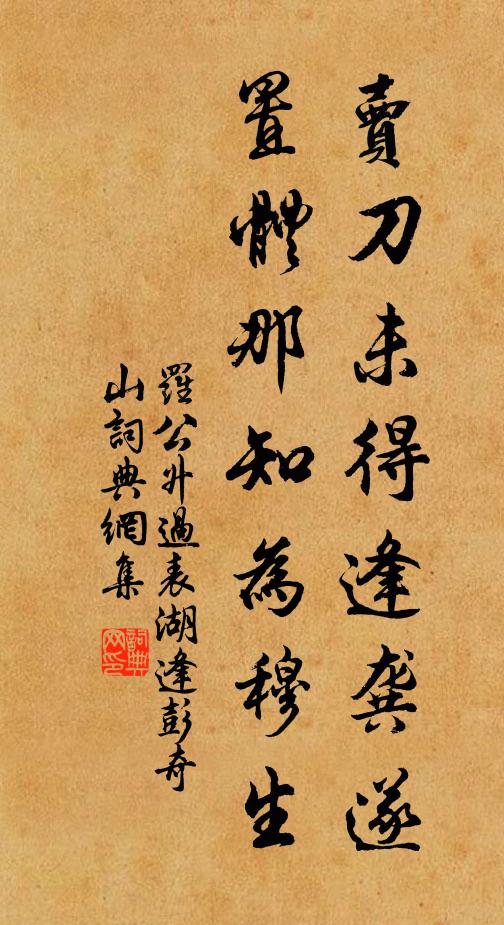 賣刀未得逢龔遂
置體那知為穆生
羅公升過表湖逢彭奇
山詞典網集
詞典
网印